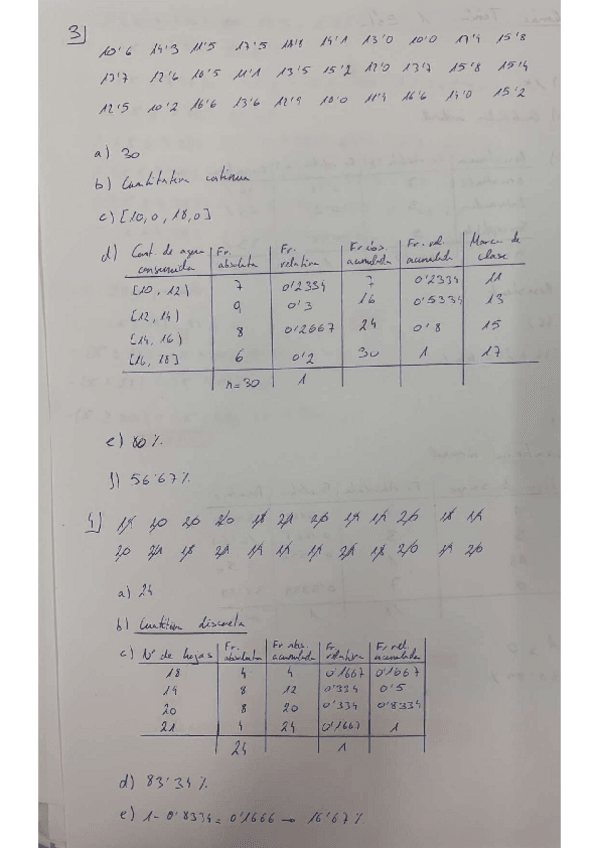 3)
10'6 14'3 11'5 17'5 14'1 13'0 10'0 17'4 15'8
13'7 12'6 10'5 11'1 13'5 15'2 13'7 15'8 15'4
12'5 10'2 16'6 13'6 12'9 10'0 11'4 16'6 14'0 15'2
a) 30
b) Cuantitativa continua
c) [10,0 , 18,0]
d) Cant. de agua consumida | Fr. absoluta | Fr. relativa | Fr abs. acumulada | Fr. rel. acumulada | Marca de clase
[10, 12) 7 0'2334 7 0'2334 11
[12, 14) 9 0'3 16 0'5334 13
[14, 16) 8 0'2667 24 0'8 15
[16, 18] 6 0'2 30 1 17
n=30 1
e) 80%
f) 56'67%
4)
a) 24
b) discreta
c) Nº de hojas | Fr. absoluta | Fr abs. acumulada | Fr. relativa | Fr rel. acumulada
18 4 4 0'1667 0'1667
19 8 12 0'334 0'5
20 8 20 0'334 0'8334
21 4 24 0'1667 1
24 1
d) 83'34%
e) 1-0'8334=0'1666 → 16'67%